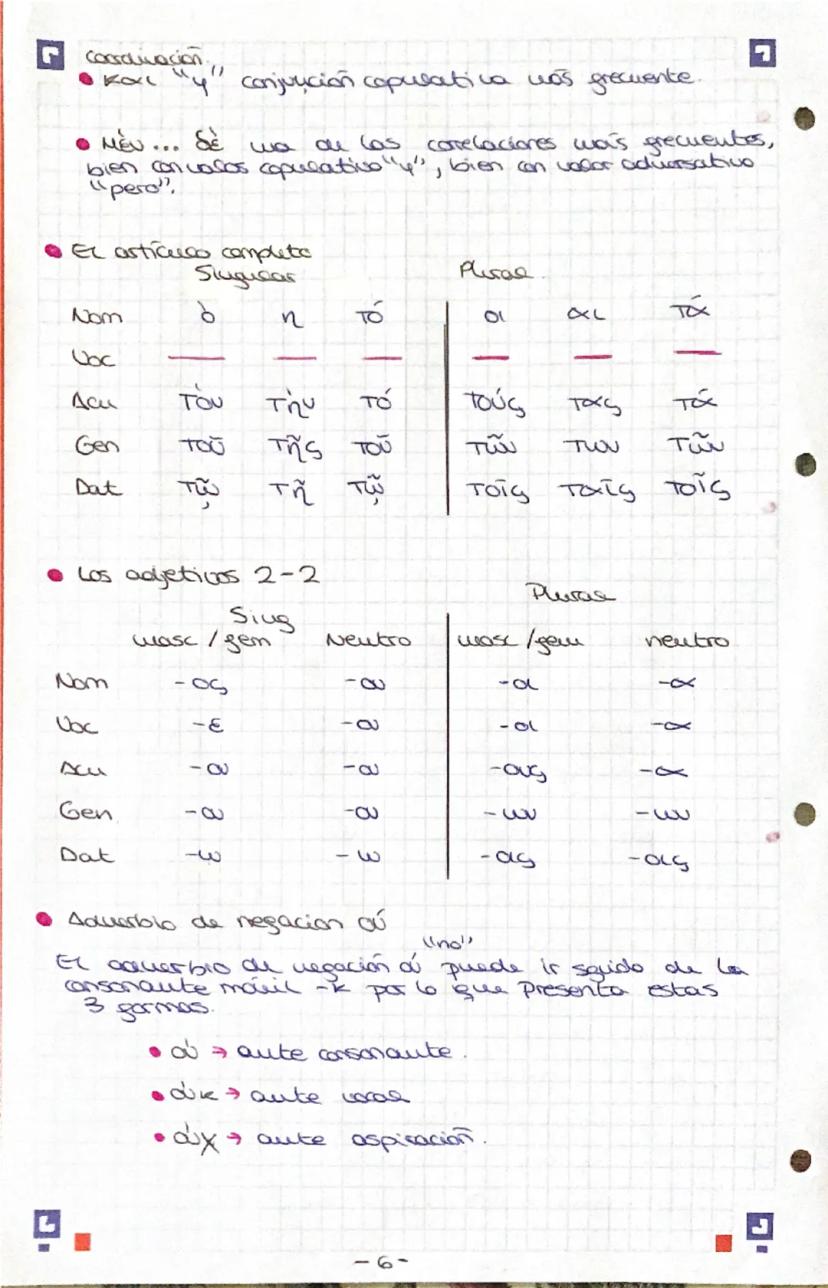 Coordinación.
• και "y" conjunción copulativa más frecuente.
• Μὲν ... δὲ una de las correlaciones más frecuentes,
bien con valor copulativo "y", bien con valor adversativo
"pero".
• El artículo completo
Singular Plural
Nom ὁ η τό οι αι τά
Voc — — — — — —
Acu τὸν τὴν τό τούς τας τά
Gen τοῦ τῆς τοῦ τῶν των τῶν
Dat τῷ τῆ τῷ τοῖς ταῖς τοῖς
• Los adjetivos 2-2
Sing Plural
masc / fem Neutro masc / fem neutro
Nom -ος -ον -οι -α
Voc -ε -ον -οι -α
Acu -ον -ον -ους -α
Gen -ου -ου -ων -ων
Dat -ω -ω -οις -οις
• Adverbio de negacion οὐ
"no"
El adverbio de negación οὐ puede ir seguido de la
consonante móvil -κ por lo que presenta estas
3 formas.
• οὐ → ante consonante.
• οὐκ → ante vocal
• οὐχ → ante aspiración.
-6-